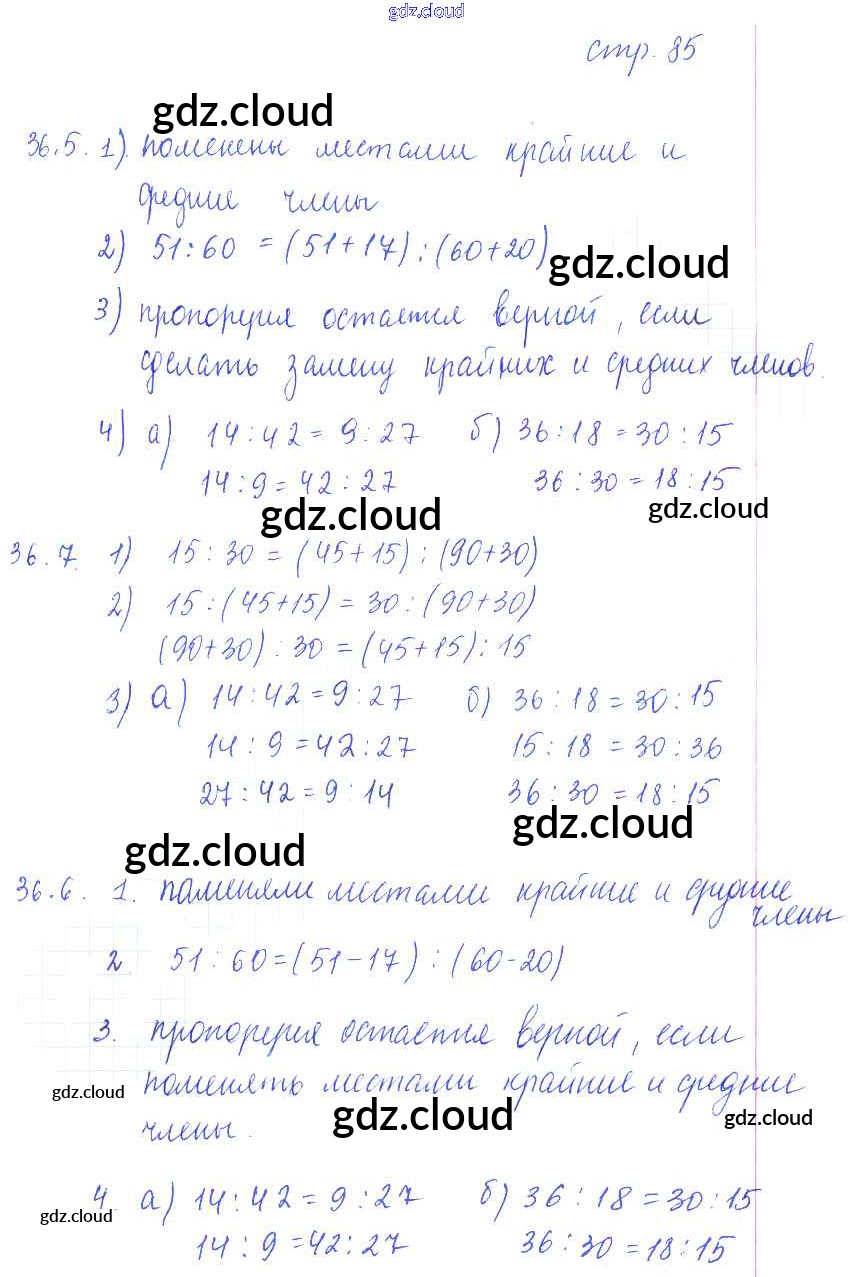 gdz.cloud
стр. 85
gdz.cloud
36.5. 1). поменены местами крайние и
средние члены
2) 51:60 = (51+17) : (60+20)
gdz.cloud
3) пропорция остается верной, если
сделать замену крайних и средних членов.
4) а) 14:42 = 9:27 б) 36:18 = 30:15
14:9 = 42:27 36:30 = 18:15
gdz.cloud gdz.cloud
36.7. 1) 15:30 = (45+15) : (90+30)
2) 15:(45+15) = 30:(90+30)
(90+30):30 = (45+15):15
3) а) 14:42 = 9:27 б) 36:18 = 30:15
14:9 = 42:27 15:18 = 30:36
27:42 = 9:14 36:30 = 18:15
gdz.cloud
gdz.cloud
36.6. 1. поменяли местами крайние и средние
члены
2 51:60 = (51-17) : (60-20)
3. пропорция остается верной, если
gdz.cloud
поменять местами крайние и средние
gdz.cloud gdz.cloud
члены.
4 а) 14:42 = 9:27 б) 36:18 = 30:15
gdz.cloud
14:9 = 42:27 36:30 = 18:15